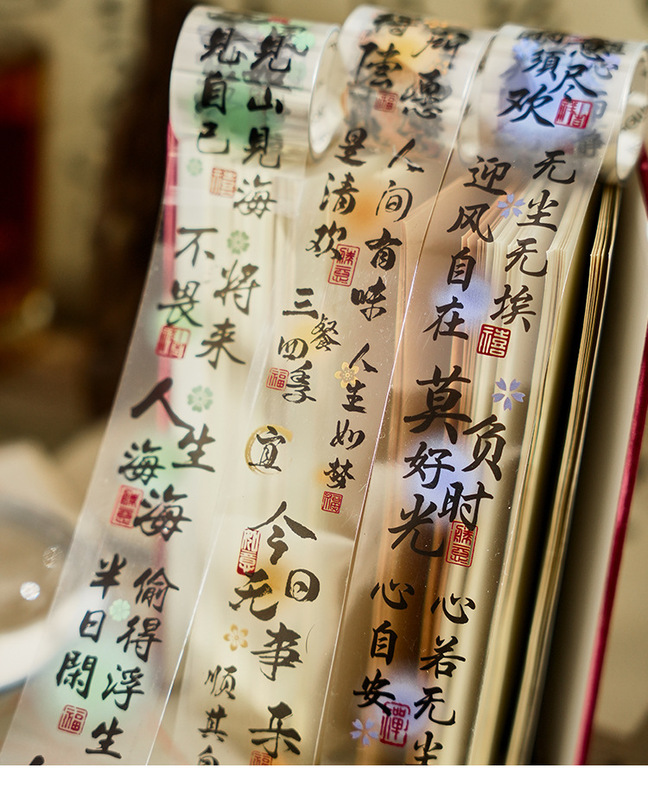 见山见海
见自己
不畏
将来
人生
海海
偷得浮生
半日閑
所愿
人间有味
是清欢
三餐
四季
人生如梦
宜
今日
无事
乐
顺其自
须尽
欢
无尘无埃
迎风自在
莫负
好时
光
心若无尘
心自安